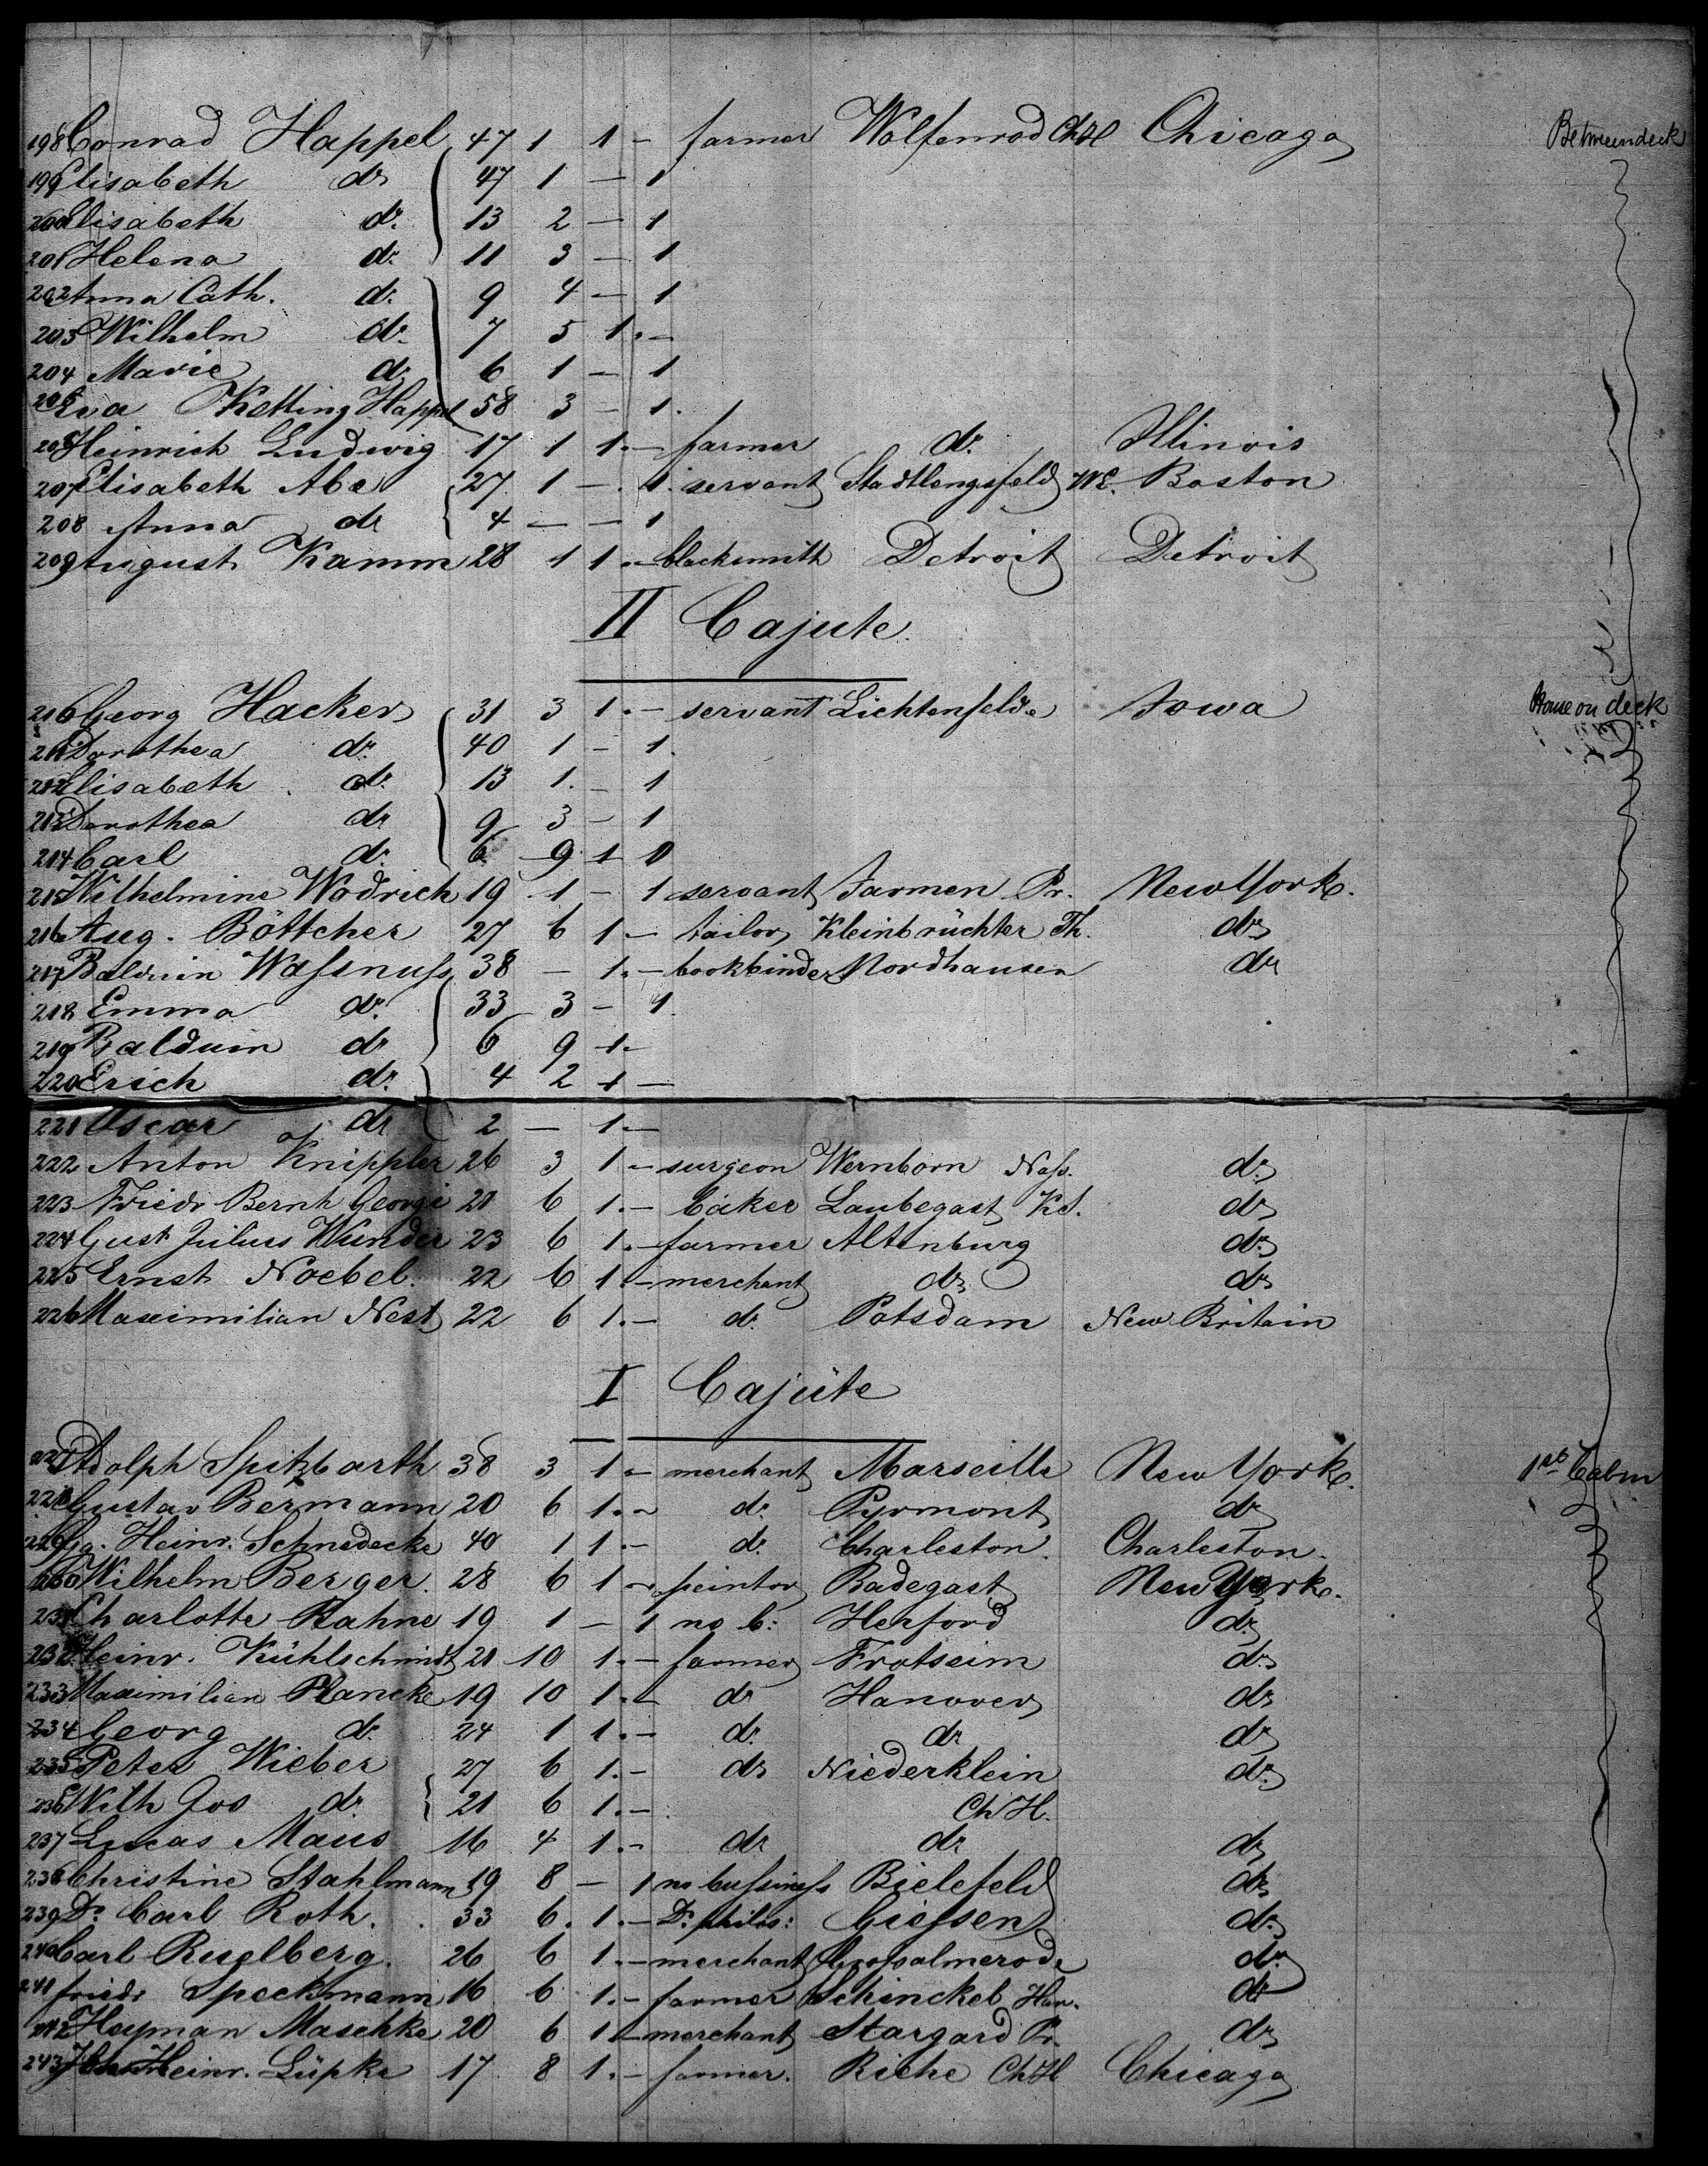 198 Conrad Happel 47 1 1 - farmer Wolfenrod ChH Chicago Betweendeck
199 Elisabeth do 47 1 - 1
200 Elisabeth do. 13 2 - 1
201 Helena do. 11 3 - 1
202 Anna Cath. do. 9 4 - 1
203 Wilhelm do. 7 5 1. -
204 Marie do 6 1 - 1
205 Eva Ketting Happel 58 3 - 1.
206 Heinrich Ludwig 17 1 1. - farmer do. Illinois
207 Elisabeth Abe 27 1 - 1. servant Stadtlengsfeld WE. Boston
208 Anna do 4 - - 1
209 August Kamm 28 1 1. - blacksmith Detroit Detroit
II Cajute.
210 Georg Hacker 31 3 1. - servant Lichtenfelde Iowa House on deck
211 Dorothea do. 40 1 - 1.
212 Elisabeth do. 13 1. - 1
213 Dorothea do 9 3 - 1
214 Carl do. 6 9 1 0
215 Wilhelmine Wodrich 19 1 - 1 servant Jarmen Pr. New York.
216 Aug. Böttcher 27 6 1 - tailor Kleinbrüchter Th. do
217 Balduin Wassnuss 38 - 1. - bookbinder Nordhausen do
218 Emma do. 33 3 - 1
219 Balduin do 6 9 1 -
220 Erich do. 4 2 1 -
221 Oscar do 2 - 1. -
222 Anton Knippler 26 3 1 - surgeon Wernborn Nass. do.
223 Friedr Bernh Georgi 21 6 1. - baker Laubegast KS. do
224 Gust Julius Wunder 23 6 1. - farmer Altenburg do.
225 Ernst Noebel. 22 6 1. - merchant do do
226 Maximilian Nest 22 6 1. - do. Potsdam New Britain
I Cajüte
227 Adolph Spitzbarth 38 3 1. - merchant Marseille New York.
228 Gustav Bermann 20 6 1. - do. Pyrmont do
229 Gg. Heinr. Schnedecke 40 1 1. - do. Charleston. Charleston.
230 Wilhelm Berger. 28 6 1 - peintor Badegast New York.
231 Charlotte Rahne 19 1 - 1 no b: Herford do.
232 Heinr. Kühlschmidt 21 10 1. - farmer Frotseim do.
233 Maximilian Plancke 19 10 1. - do Hanover do
234 Georg do. 24 1 1. - do. do do
235 Peter Wieber 27 6 1. - do Niederklein do.
236 Wilh Jos do. 21 6 1. - ChH.
237 Lucas Maus 16 4 1. - do do do
238 Christine Stahlmann 19 8 - 1 no bussiness Bielefeld do
239 Dr. Carl Roth. 33 6. 1. - Dr. philos: Giessen do.
240 Carl Ruelberg. 26 6 1. - merchant Grossalmerode do.
241 Friedr Speckmann 16 6 1. - farmer Schinckel Han. do
242 Heyman Maschke 20 6 1. - merchant Stargard Pr. do
243 Heinr. Lüpke 17 8 1. - farmer. Riehe ChH Chicago
1st Cabin